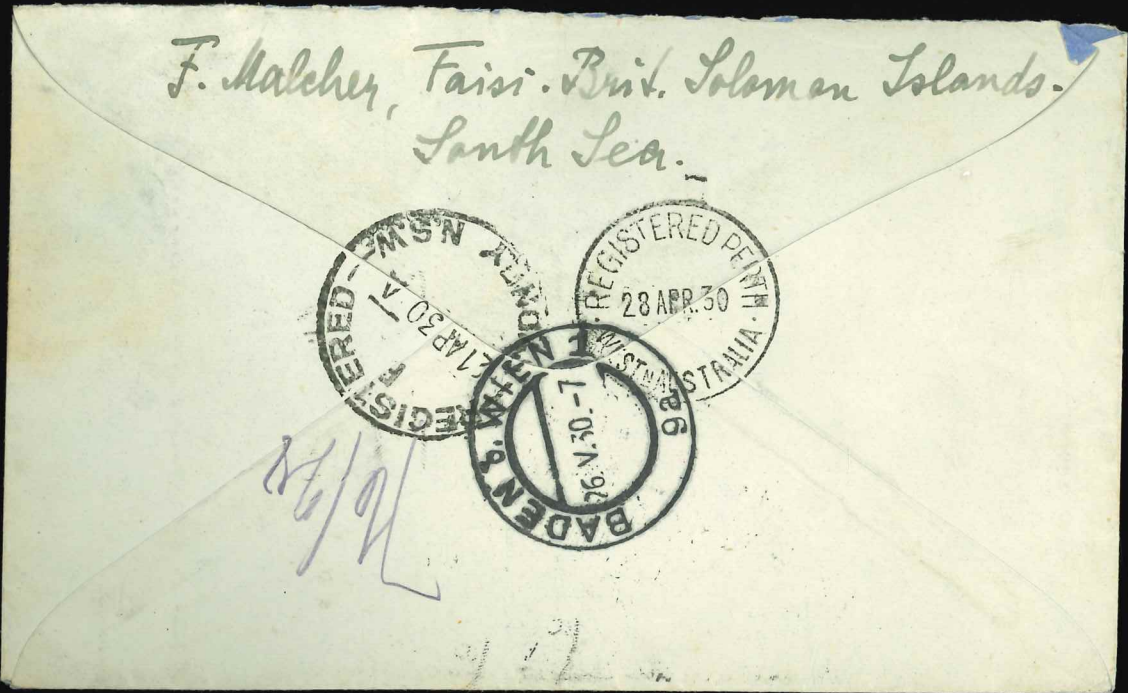 F. Malcher, Faisi. Brit. Solomon Islands.
South Sea.
REGISTERED SYDNEY N.S.W.
21 AP 30
REGISTERED PERTH
28 APR. 30
WESTN AUSTRALIA
BADEN b. WIEN 1
26.V.30.-7
9a